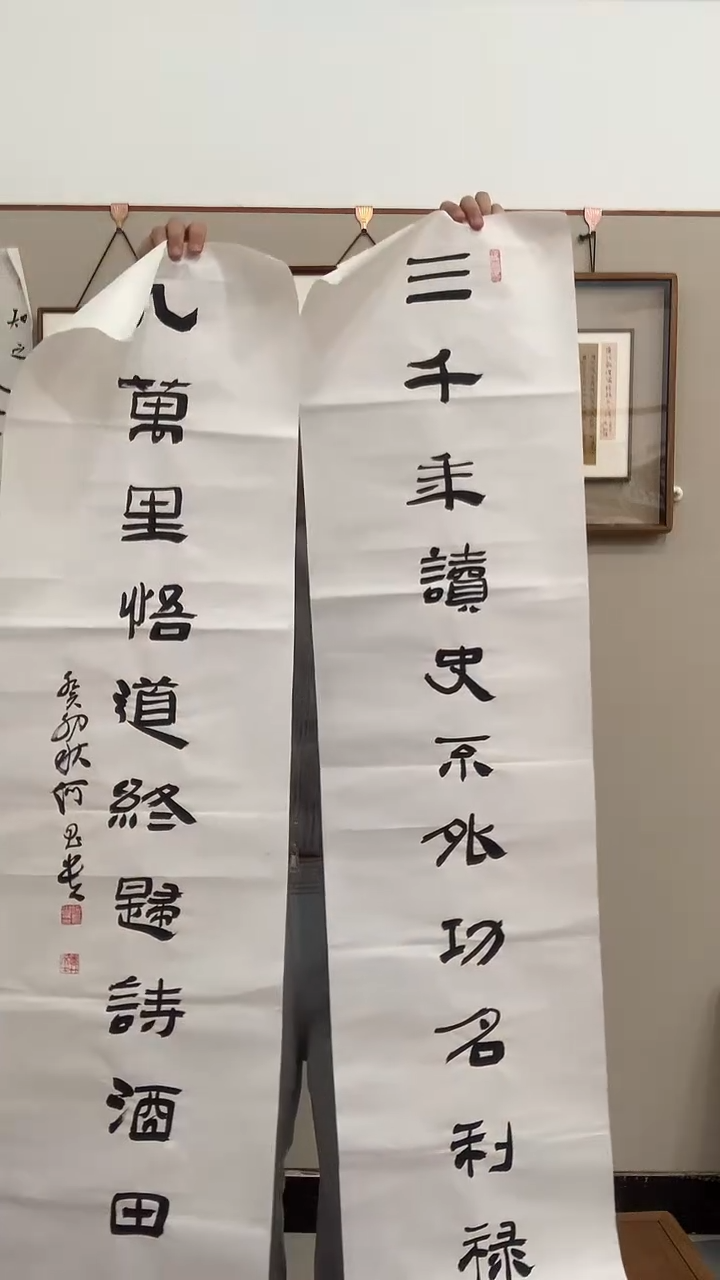 三千年讀史不外功名利禄
九萬里悟道終歸詩酒田
癸卯秋何
知之